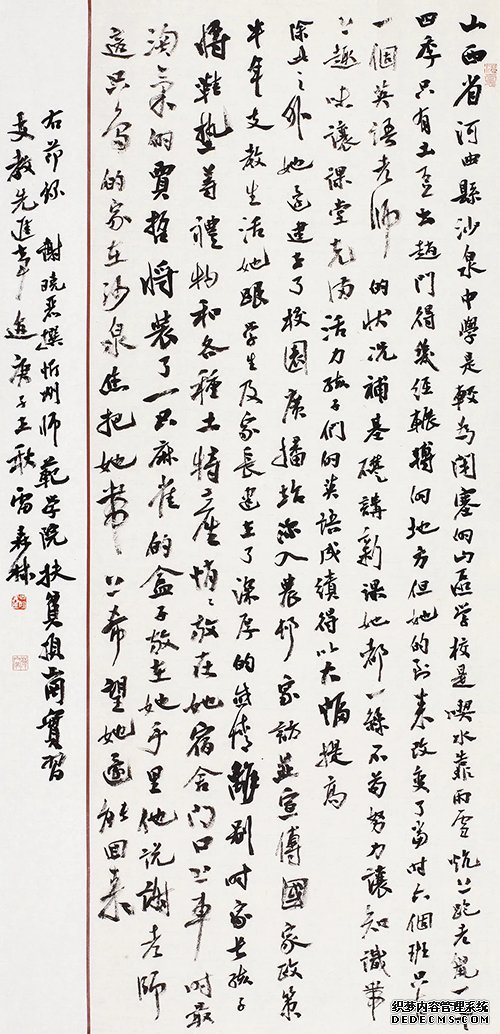 山西省河曲縣沙泉中學是較為閉塞的山區學校是喫水靠雨雪炕上跑老鼠一年
四季只有土豆出趟門得幾經輾轉的地方但她的到來改變了當時六個班只有
一個英語老師的狀況補基礎講新課她都一絲不苟努力讓知識帶
上趣味讓課堂充滿活力孩子們的英語成績得以大幅提高
除此之外她還建立了校園廣播站深入農村家訪並宣傳國家政策
半年支教生活她跟學生及家長建立了深厚的感情離別時家長孩子
將鞋墊等禮物和各種土特產悄悄放在她宿舍門口上車時最
淘氣的賈哲將裝了一只麻雀的盒子放在她手里他說謝老師
這只鳥的家在沙泉您把她帶上希望她還能回來
右節錄謝曉 撰忻州師範學院扶貧頂崗實習
支教先進事迹庚子 秋雷
织梦内容管理系统
DEDECMS.COM